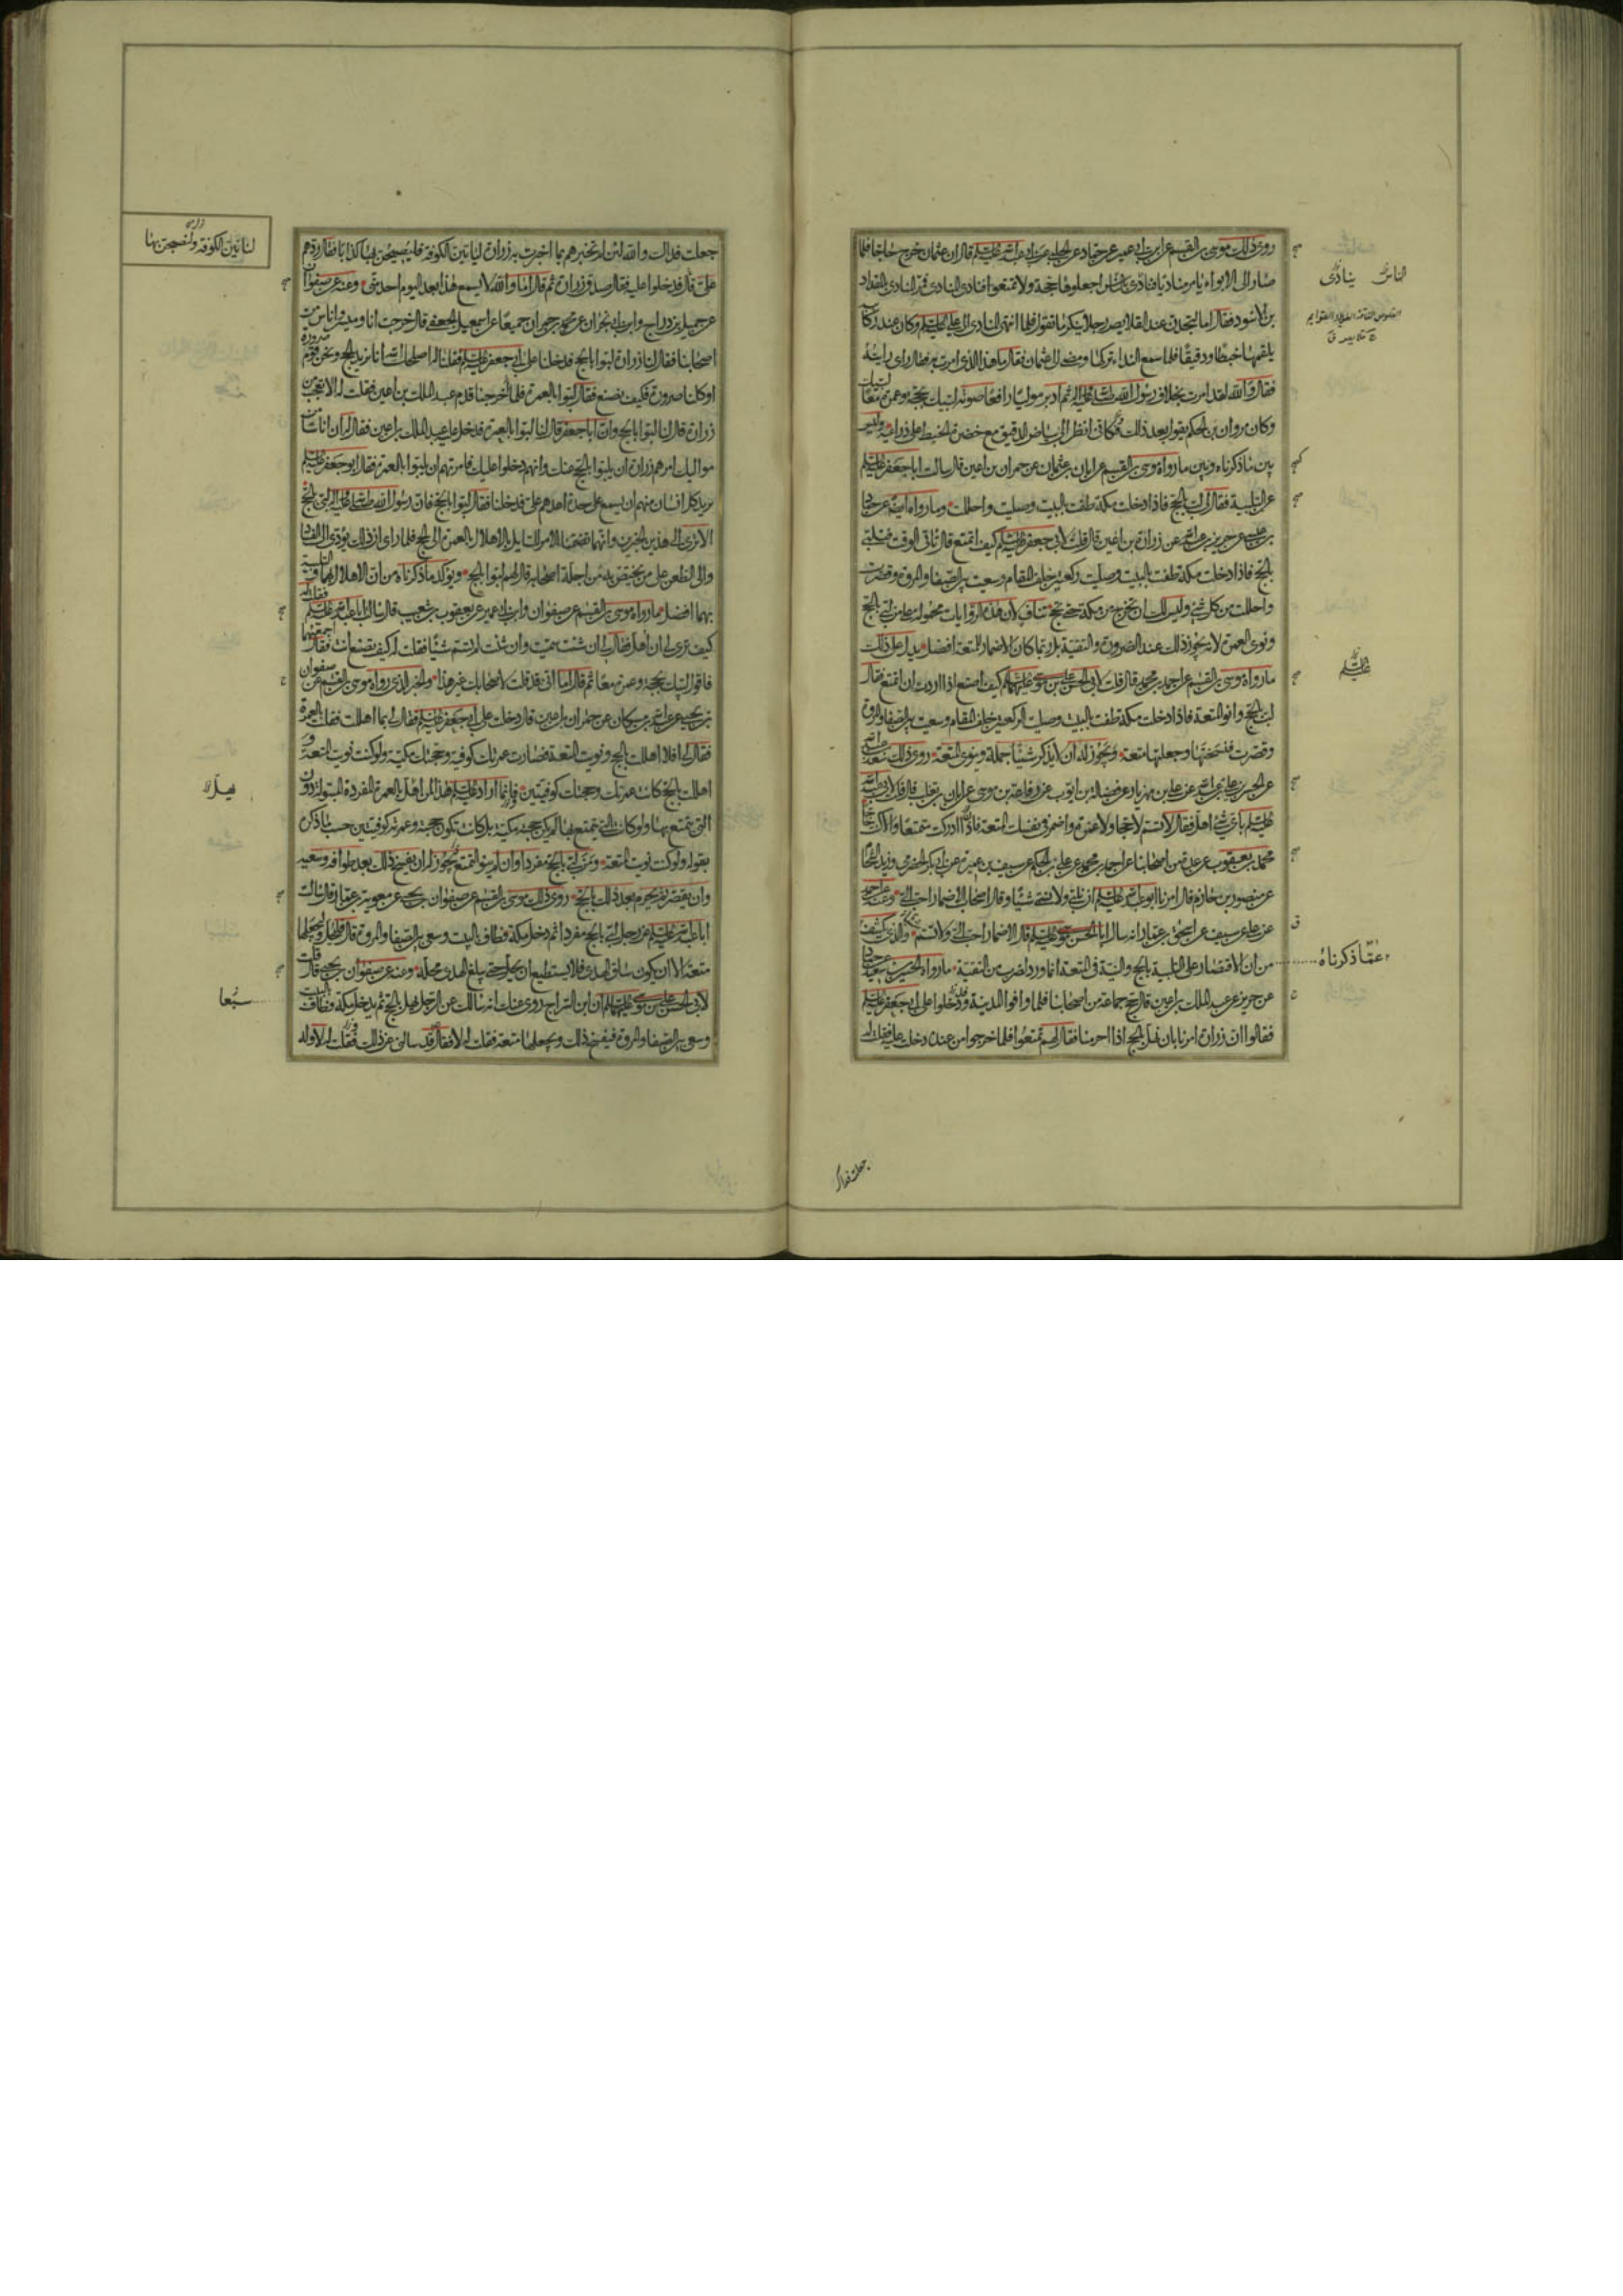 روى ذلك موسى بن القسم عن ابن ابى عمير عن حماد عن الحلبى عن ابى عبد الله عليه السلم قال ان عثمان خرج حاجا فلما
صار الى الابواء امر مناديا فنادى بالناس اجعلوها حجة ولا تمتعوا فنادى المنادى فمر المنادى بالمقداد
بن الاسود فقال اما لتجدن عند القلايص رجلا ينكر ما تقول فلما انتهى المنادى الى على عليه السلم وكان عند ركائبه
يلقمها خبطا ودقيقا فلما سمع النداء تركها ومضى الى عثمان فقال ما هذا الذى امرت به فقال راى رايته
فقال والله لقد امرت بخلاف رسول الله صلى الله عليه واله ثم ادبر موليا رافعا صوته لبيك بحجة وعمرة معا لبيك
وكان مروان بن الحكم يقول بعد ذلك فكانى انظر الى بياض الدقيق مع خضرة الخبط على ذراعيه وليس
بين ما ذكرناه وبين ما رواه موسى بن القسم عن ابان بن عثمان عن حمران بن اعين قال سالت ابا جعفر عليه السلم
عن التلبية فقال لى لب بالحج فاذا دخلت مكة طفت بالبيت وصليت واحللت وما رواه ايضا عن حماد
بن عيسى عن حريز بن عبد الله عن زرارة بن اعين قال قلت لابى جعفر عليه السلم كيف اتمتع قال تاتى الوقت فتلبى
بالحج فاذا دخلت مكة طفت بالبيت وصليت ركعتين خلف المقام وسعيت بين الصفا والمروة وقصرت
واحللت من كل شئ وليس لك ان تخرج من مكة حتى تحج تناف لان هذه الروايات محمولة على من لبى بالحج
ونوى العمرة لانه يجوز ذلك عند الضرورة والتقية بل ربما كان الاضمار للمتعة افضل يدل على ذلك
ما رواه موسى بن القسم عن احمد بن محمد قال قلت لابى الحسن على بن موسى عليهما السلم كيف اصنع اذا اردت ان اتمتع فقال
لب بالحج وانو المتعة فاذا دخلت مكة طفت بالبيت وصليت الركعتين خلف المقام وسعيت بين الصفا والمروة
وقصرت فنسختها وجعلتها متعة ويجوز له ان لا يذكر شيئا جملة وينوى المتعة روى ذلك سعد بن عبد الله
عن الحسن بن على بن عبد الله عن على بن مهزيار عن فضالة بن ايوب عن رفاعة بن موسى عن ابان بن تغلب قال قلت لابى عبد الله
عليه السلم باى شئ اهل فقال لا تسم لا حجا ولا عمرة واضمر فى نفسك المتعة فان ادركت متمتعا والا كنت حاجا
محمد بن يعقوب عن عدة من اصحابنا عن احمد بن محمد عن على بن الحكم عن سيف بن عميرة عن ابى بكر الحضرمى وزيد الشحام
عن منصور بن حازم قال امرنا ابو عبد الله عليه السلم ان نلبى ولا نسمى شيئا وقال اصحاب الاضمار احب الى وعنه عن احمد
عن على عن سيف عن اسحق بن عمار انه سال ابا الحسن موسى عليه السلم قال الاضمار احب الى ولا تسم والذى يكشف
من ان الاقتصار على التلبية بالحج والنية فى المتعة انما ورد لضرب من التقية ما رواه الحسين بن سعيد عن حماد
عن حريز عن عبد الملك بن اعين قال حج جماعة من اصحابنا فلما وافوا المدينة ودخلوا على ابى جعفر عليه السلم
فقالوا ان زرارة امرنا بان نهل بالحج اذا احرمنا فقال لهم تمتعوا فلما خرجوا من عنده دخلت عليه فقلت له
الناس ينادى
عليه السلم
عما ذكرناه
جعلت فداك
جعلت فداك والله لئن لم تخبرهم بما اخبرت به زرارة لياتين الكوفة فليصبحن بها كذابا فقال ردهم
على قال فدخلوا عليه فقال صدق زرارة ثم قال اما والله لا يسمع هذا بعد اليوم احد منى وعنه عن صفوان
عن جميل بن دراج وابن ابى نجران عن محمد بن حمران جميعا عن اسمعيل الجعفى قال خرجت انا وميسر واناس من
اصحابنا فقال لنا زرارة لبوا بالحج فدخلنا على ابى جعفر عليه السلم فقلنا له اصلحك الله انا نريد الحج ونحن قوم صرورة
او كلنا صرورة فكيف نصنع فقال لبوا بالعمرة فلما خرجنا قدم عبد الملك بن اعين فقلت له الا تعجب من
زرارة قال لنا لبوا بالحج وان ابا جعفر قال لنا لبوا بالعمرة فدخل عليه عبد الملك بن اعين فقال له ان اناسا من
مواليك امرهم زرارة ان يلبوا بالحج عنك وانهم دخلوا عليك فامرتهم ان يلبوا بالعمرة فقال ابو جعفر عليه السلم
يريد كل انسان منهم ان يسمع على حدة اعدهم على فدخلنا فقال لبوا بالحج فان رسول الله صلى الله عليه واله لبى بالحج
الا ترى الى هذين الخبرين وانهما تضمنا الامر للسايل بالاهلال بالعمرة الى الحج فلما راى ان ذلك يؤدى الى الفساد
والى الطعن على من يختص به من اجلة اصحابه قال لهم لبوا بالحج ويؤكد ما ذكرناه من ان الاهلال بهما والتلبية
بهما افضل ما رواه موسى بن القسم عن صفوان وابن ابى عمير عن يعقوب بن شعيب قال سالت ابا عبد الله عليه السلم فقلت له
كيف ترى لى ان اهل فقال لى ان شئت سميت وان شئت لم تسم شيئا فقلت له كيف تصنع انت فقال اجمعهما
فاقول لبيك بحجة وعمرة معا ثم قال اما انى قد قلت لاصحابك غير هذا والخبر الذى رواه موسى بن القسم عن صفوان
بن يحيى عن عبد الله بن مسكان عن حمران بن اعين قال دخلت على ابى جعفر عليه السلم فقال لى بما اهللت فقلت بالعمرة
فقال لى افلا اهللت بالحج ونويت المتعة فصارت عمرتك كوفية وحجتك مكية ولو كنت نويت المتعة و
اهللت بالحج كانت عمرتك وحجتك كوفيتين فانما اراد عليه السلم هذا لمن اهل بالعمرة المفردة المبتولة دون
التى يتمتع بها ولو كانت التى يتمتع بها لم يكن حجه مكية بل كانت تكون حجته وعمرته كوفيتين حسب ما ذكره
بقوله ولو كنت نويت المتعة ومن لبى بالحج مفردا وان لم ينو التمتع يجوز له ان يفسخ ذلك بعد طوافه وسعيه
وان يقصر ثم يحرم بعد ذلك بالحج روى ذلك موسى بن القسم عن صفوان بن يحيى عن معوية بن عمار قال سالت
ابا عبد الله عليه السلم عن رجل لبى بالحج مفردا ثم دخل مكة فطاف بالبيت وسعى بين الصفا والمروة قال فليحل وليجعلها
متعة الا ان يكون ساق الهدى فلا يستطيع ان يحل حتى يبلغ الهدى محله وعنه عن صفوان بن يحيى قال قلت
لابى الحسن على بن موسى عليهما السلم ان ابن السراج روى عنك انه سالك عن الرجل يهل بالحج ثم يدخل مكة وطاف بالبيت
وسعى بين الصفا والمروة فيفسخ ذلك ويجعلها متعة فقلت له لا فقال قد سالنى عن ذلك فقلت له لا وله
لناتين الكوفة ولنصبحن بها
سبعا